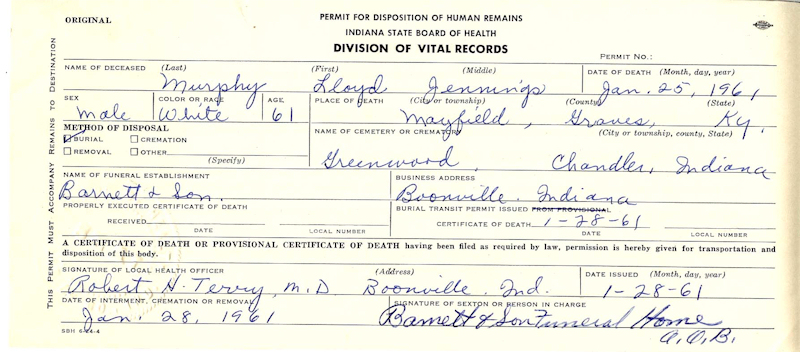 ORIGINAL
PERMIT FOR DISPOSITION OF HUMAN REMAINS
INDIANA STATE BOARD OF HEALTH
DIVISION OF VITAL RECORDS
PERMIT NO.:
THIS PERMIT MUST ACCOMPANY REMAINS TO DESTINATION
NAME OF DECEASED (Last) (First) (Middle) DATE OF DEATH (Month, day, year)
Murphy Lloyd Jennings Jan. 25, 1961
SEX COLOR OR RACE AGE PLACE OF DEATH (City or township) (County) (State)
Male White 61 Mayfield, Graves, Ky.
METHOD OF DISPOSAL NAME OF CEMETERY OR CREMATORY (City or township, county, State)
BURIAL CREMATION
REMOVAL OTHER
(Specify)
Greenwood, Chandler, Indiana
NAME OF FUNERAL ESTABLISHMENT BUSINESS ADDRESS
Barnett & Son. Boonville, Indiana
PROPERLY EXECUTED CERTIFICATE OF DEATH BURIAL TRANSIT PERMIT ISSUED FROM PROVISIONAL
RECEIVED CERTIFICATE OF DEATH 1-28-61
DATE LOCAL NUMBER DATE LOCAL NUMBER
A CERTIFICATE OF DEATH OR PROVISIONAL CERTIFICATE OF DEATH having been filed as required by law, permission is hereby given for transportation and
disposition of this body.
SIGNATURE OF LOCAL HEALTH OFFICER (Address) DATE ISSUED (Month, day, year)
Robert H. Terry, M.D Boonville, Ind. 1-28-61
DATE OF INTERMENT, CREMATION OR REMOVAL SIGNATURE OF SEXTON OR PERSON IN CHARGE
Jan. 28, 1961 Barnett & Son Funeral Home
SBH